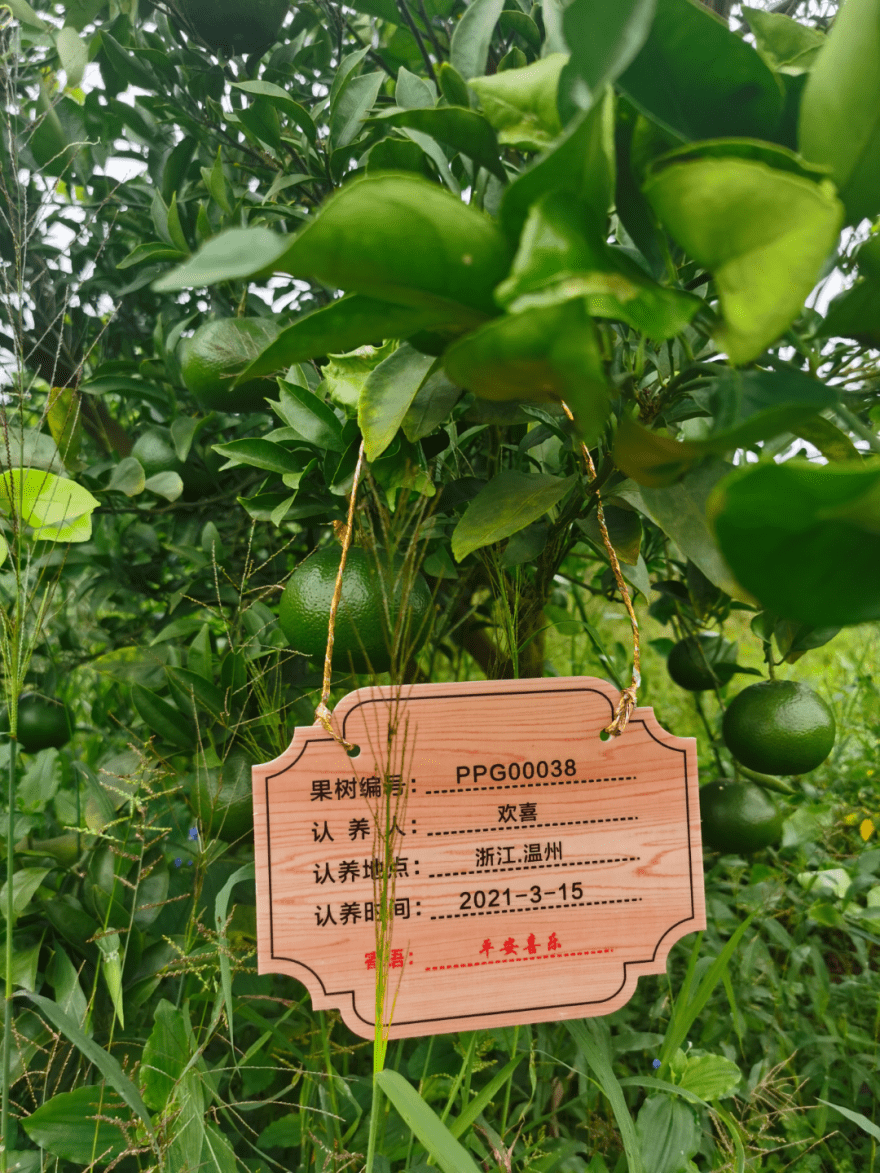 果树编号：PPG00038
认养人：欢喜
认养地点：浙江.温州
认养时间：2021-3-15
寄语：平安喜乐